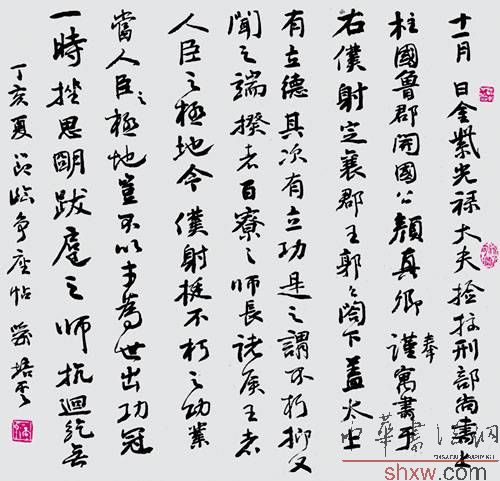 十一月 日金紫光禄大夫检挍刑部尚書上
柱國魯郡開國公顏真卿謹奉寓書于
右僕射定襄郡王郭公閤下蓋太上
有立德其次有立功是之謂不朽抑又
聞之端揆者百寮之師長諸侯王者
人臣之極地今僕射挺不朽之功業
當人臣之極地豈不以才為世出功冠
一時挫思明跋扈之師抗迴紇無
丁亥夏 節臨争座帖
中華書法網
shxw.com